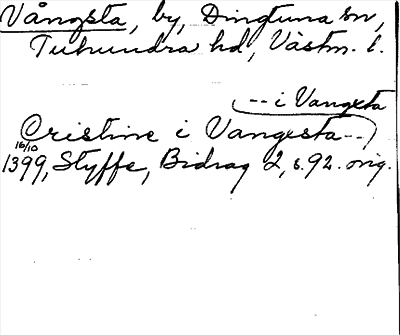 Vångsta, by, Dingtuna sn,
Tuhundra hd, Västm. l.
-- i Vangxta
Cristine i Vangesta --)
16/10
1399, Styffe, Bidrag 2, s. 92. orig.